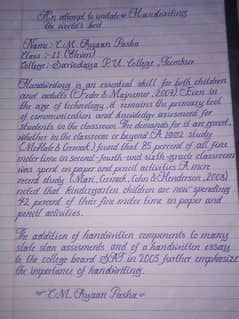 An attempt to update Handwriting
the world's best
Name :- C.M. Ayaan Pasha
Class :- 11 (Eleven)
College :- Sarvodaya P.U. College, Tumkur
Handwriting is an essential skill for both children
and adults (Feder & Majnemer, 2007). Even in
the age of technology, it remains the primary tool
of communication and knowledge assesment for
students in the classroom. The demands for it are great,
whether in the classroom or beyond. A 1992 study
(McHale & Cermak) found that 85 percent of all fine
motor time in second-fourth-and sixth-grade classroom
was spent on paper and pencil activities. A more
recent study (Marr, Cermak, Cohn & Henderson, 2003)
noted that kindergarten children are now spending
42 percent of their fine motor time on paper and
pencil activities.
The addition of handwritten components to many
state stan assesments and of a handwritten essay
to the college board SAT in 2005 further emphasize
the importance of handwriting.
C.M. Ayaan Pasha